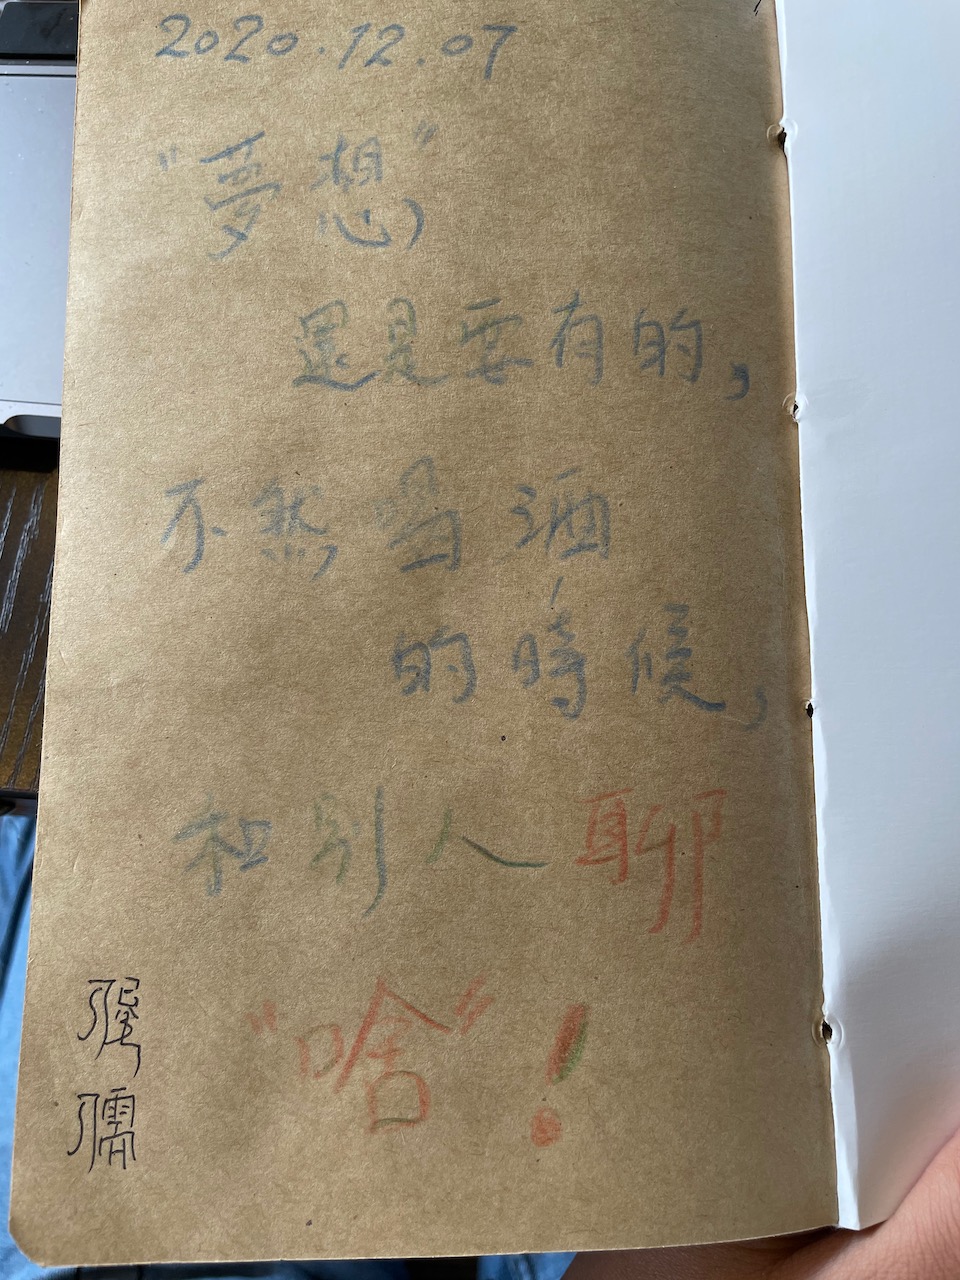 2020.12.07
"夢想"
還是要有的,
不然喝酒
的時候,
和別人聊
"啥"!
儒